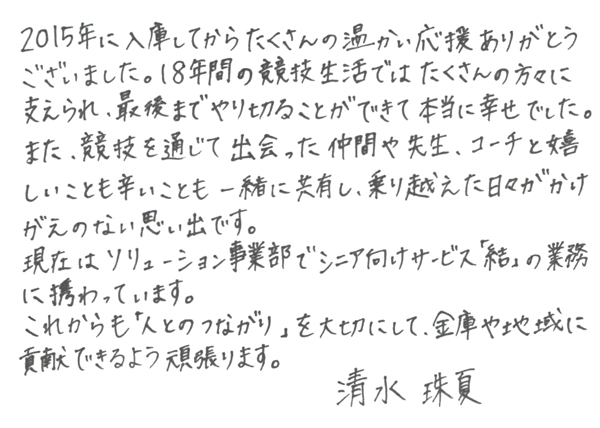 2015年に入庫してからたくさんの温かい応援ありがとう
ございました。18年間の競技生活ではたくさんの方々に
支えられ、最後までやり切ることができて本当に幸せでした。
また、競技を通じて出会った仲間や先生、コーチと嬉
しいことも辛いことも一緒に共有し、乗り越えた日々がかけ
がえのない思い出です。
現在はソリューション事業部でシニア向けサービス「結」の業務
に携わっています。
これからも「人とのつながり」を大切にして、金庫や地域に
貢献できるよう頑張ります。
清水 珠夏